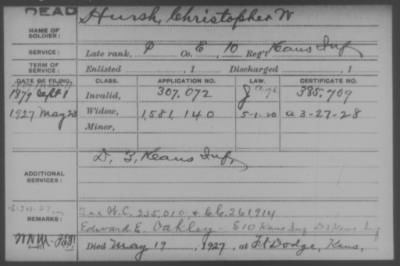 DEAD
NAME OF SOLDIER: Hursh, Christopher W
SERVICE: Late rank, P Co. E, 10 Reg't Kans Inf
TERM OF SERVICE: Enlisted , 1 Discharged , 1
DATE OF FILING. CLASS. APPLICATION NO. LAW. CERTIFICATE NO.
1879 Sept 1 Invalid, 307,072 385,709
1927 May 28 Widow, 1,581,140 5-1-20 a 3-27-28
Minor,
ADDITIONAL SERVICES: D, 3, Kans Inf,
REMARKS: W.C. 235,010 & 66.261914
Edward E. Oakley - E 10 Kans Inf D 3 Kans Inf
Died May 19, 1927, at Ft Dodge, Kans,